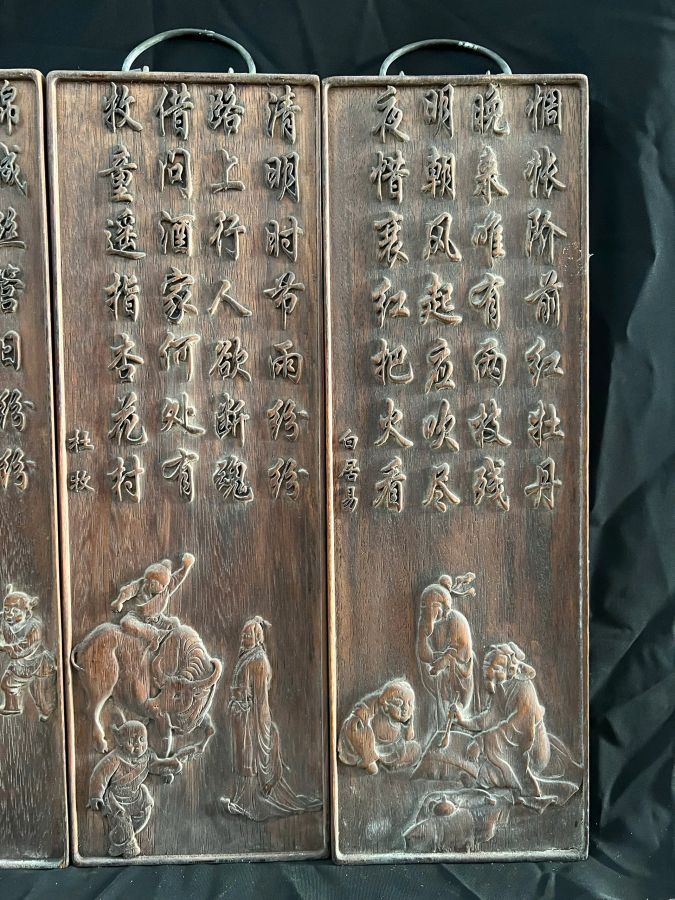 惆怅阶前红牡丹
晚来唯有两枝残
明朝风起应吹尽
夜惜衰红把火看
白居易
清明时节雨纷纷
路上行人欲断魂
借问酒家何处有
牧童遥指杏花村
杜牧
锦城丝管日纷纷